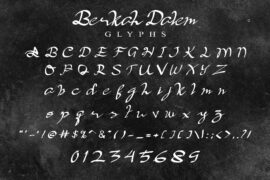 Berkah Dalem
GLYPHS
A B C D E F G H I J K L M N
O P Q R S T U V W X Y Z
a b c d e f g h i j k l m n
o p q r s t u v w x y z
0 1 2 3 4 5 6 8 9